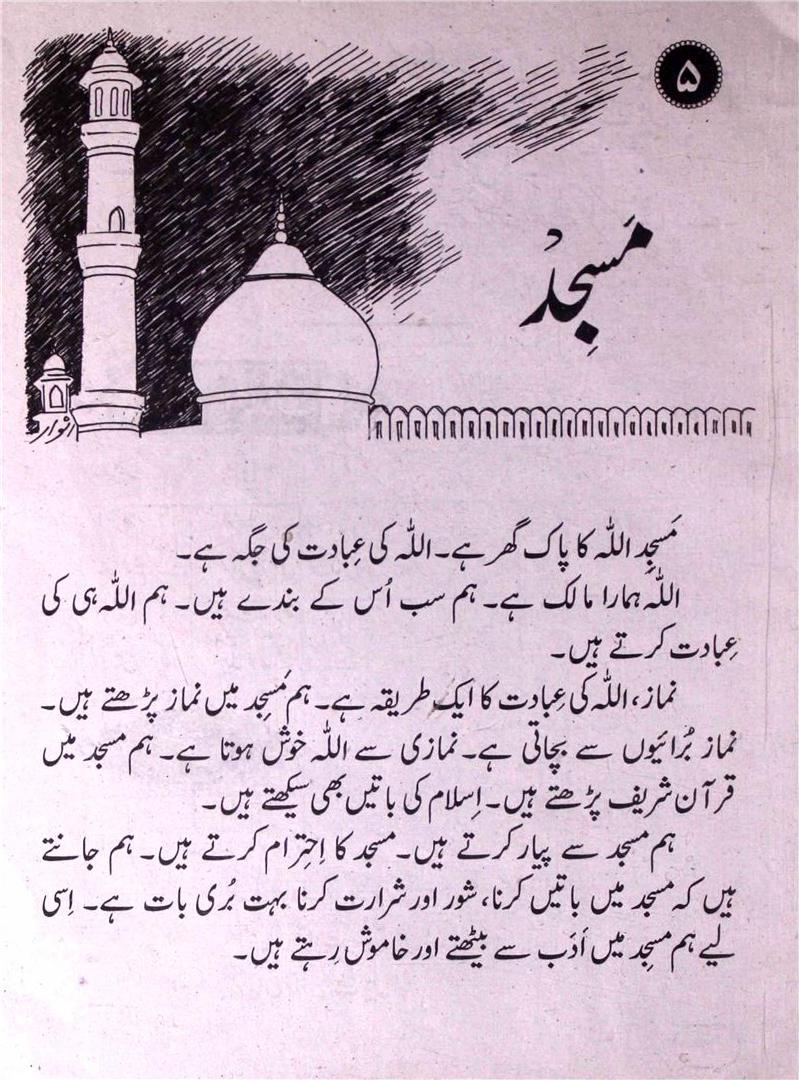 ۵
مَسجِدْ
انوار
مَسجِد اللہ کا پاک گھر ہے۔ اللہ کی عِبادت کی جگہ ہے۔
اللہ ہمارا مالک ہے۔ ہم سب اُس کے بندے ہیں۔ ہم اللہ ہی کی
عِبادت کرتے ہیں۔
نماز، اللہ کی عِبادت کا ایک طریقہ ہے۔ ہم مَسجِد میں نماز پڑھتے ہیں۔
نماز بُرائیوں سے بچاتی ہے۔ نمازی سے اللہ خوش ہوتا ہے۔ ہم مسجد میں
قرآن شریف پڑھتے ہیں۔ اِسلام کی باتیں بھی سیکھتے ہیں۔
ہم مسجد سے پیار کرتے ہیں۔ مسجد کا اِحتِرام کرتے ہیں۔ ہم جانتے
ہیں کہ مسجد میں باتیں کرنا، شور اور شرارت کرنا بہت بُری بات ہے۔ اِسی
لیے ہم مسجِد میں اَدَب سے بیٹھتے اور خاموش رہتے ہیں۔